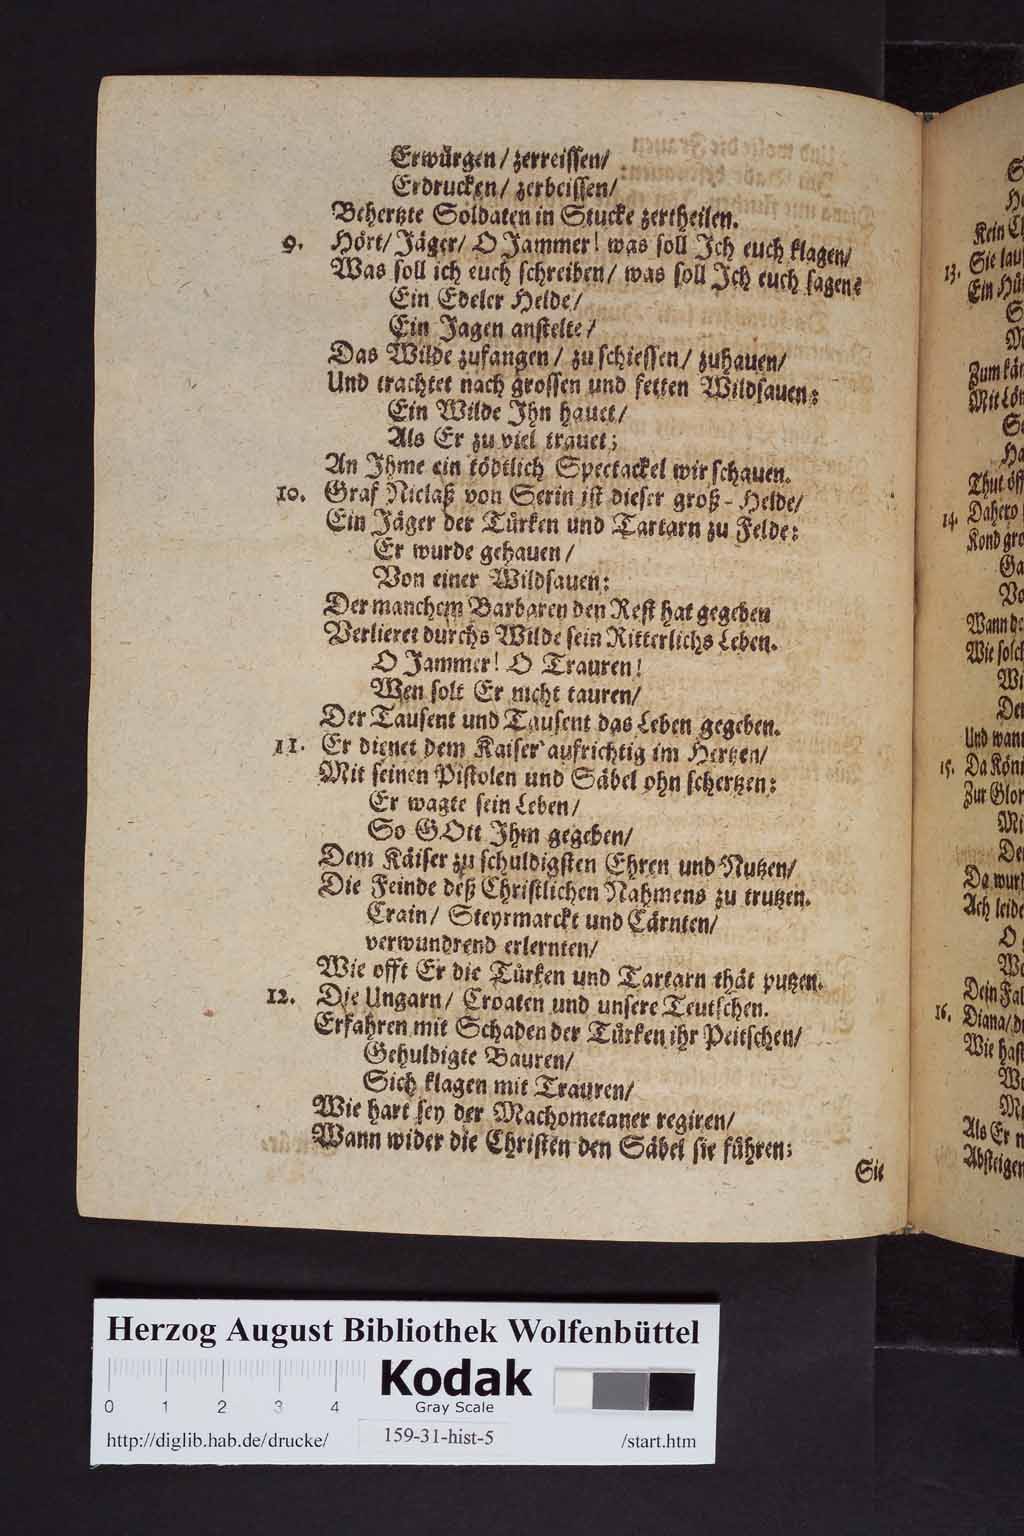 Erwürgen/ zerreissen/
Erdrucken/ zerbeissen/
Behertzte Soldaten in Stucke zertheilen.
9. Hört/ Jäger/ O Jammer! was soll Jch euch klagen/
Was soll ich euch schreiben/ was soll Jch euch sagen?
Ein Edeler Helde/
Ein Jagen anstelte/
Das Wilde zufangen/ zu schiessen/ zuhauen/
Und trachtet nach grossen und fetten Wildsauen:
Ein Wilde Jhn hauet/
Als Er zu viel trauet;
An Jhme ein tödtlich Spectackel wir schauen.
10. Graf Niclaß von Serin ist dieser groß-Helde/
Ein Jäger der Türken und Tartarn zu Felde:
Er wurde gehauen/
Von einer Wildsauen:
Der manchem Barbaren den Rest hat gegeben
Verlieret durchs Wilde sein Ritterlichs Leben.
O Jammer! O Trauren!
Wen solt Er nicht tauren/
Der Tausent und Tausent das Leben gegeben.
11. Er dienet dem Kaiser aufrichtig im Hertzen/
Mit seinen Pistolen und Säbel ohn schertzen:
Er wagte sein Leben/
So GOtt Jhm gegeben/
Dem Käiser zu schuldigsten Ehren und Nutzen/
Die Feinde deß Christlichen Nahmens zu trutzen.
Crain/ Steyrmarckt und Cärnten/
verwundrend erlernten/
Wie offt Er die Türken und Tartarn thät putzen.
12. Die Ungarn/ Croaten und unsere Teutschen.
Erfahren mit Schaden der Türken ihr Peitschen/
Gehuldigte Bauren/
Sich klagen mit Trauren/
Wie hart sey der Machometaner regiren/
Wann wider die Christen den Säbel sie führen:
Sie
Kein
13. Sie
Ein
Mit
14. Dahero
Wann
Wie
Und wann
15. Da
Zur
Da wurd
Ach
Dein
16. Diana/
Wie
Als Er
Herzog August Bibliothek Wolfenbüttel
0 1 2 3 4
Kodak
Gray Scale
http://diglib.hab.de/drucke/ 159-31-hist-5 /start.htm